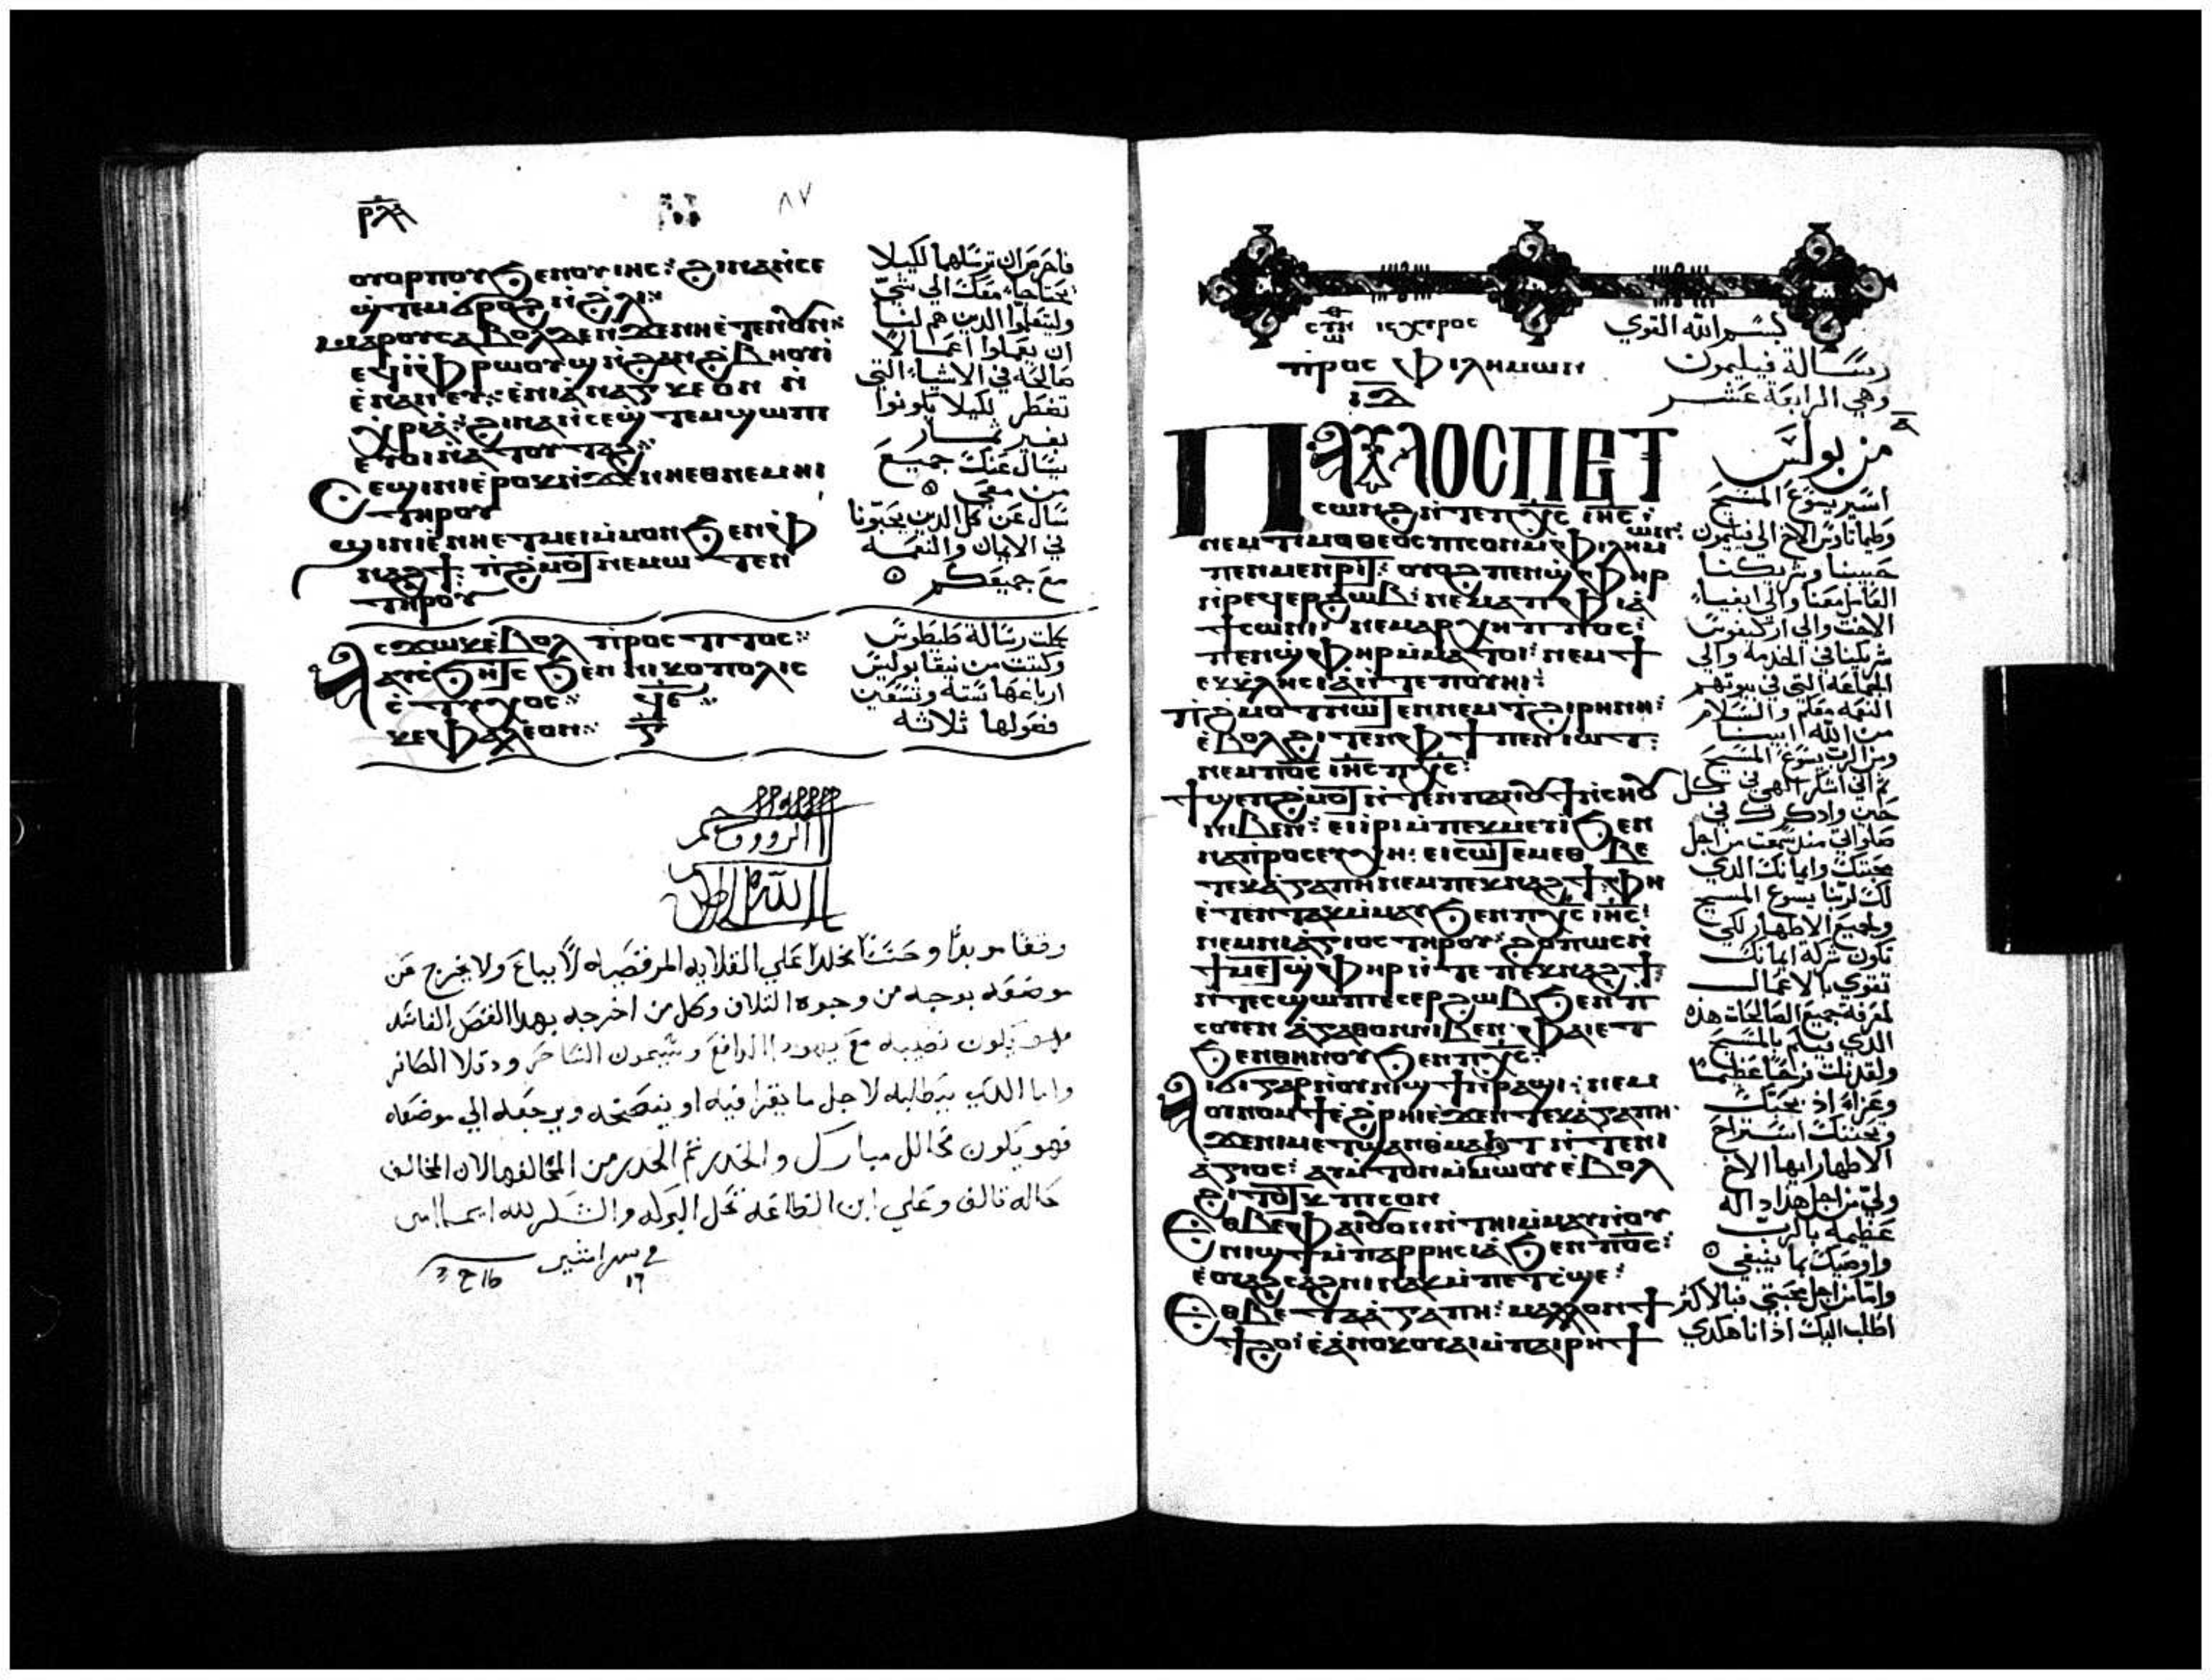 ⲟⲩⲟⲣⲡⲟⲩ ϧⲉⲛⲟⲩⲓⲏⲥ: ϩⲓⲛⲁ ⲛ̀ⲥⲉ
ϣ̀ⲧⲉⲙϭⲣⲟϩ ⲛ̀ϩⲗⲓ
ⲙⲁⲣⲟⲩⲥⲁⲃⲟ ⲇⲉ
ⲉ̀ⲛⲁⲛⲉⲩ: ⲉ̀ⲛⲓⲁ̀ⲛⲁⲅⲕⲉⲟⲛ ⲛ̀
ⲭⲣⲓⲁ̀: ϩⲓⲛⲁ ⲛ̀ⲥⲉϣ̀ⲧⲉⲙϣⲱⲡⲓ
ⲧⲏⲣⲟⲩ
ϣⲓⲛⲓ ⲉ̀ⲛⲏⲉⲧⲙⲉⲓ ⲙ̀ⲙⲟⲛ ϧⲉⲛ ⲫ
ⲛⲁϩϯ: ⲡⲓϩⲙⲟⲧ ⲛⲉⲙⲱⲧⲉⲛ
ⲧⲏⲣⲟⲩ
فاحرص ان ترسلهما لكيلا
يحتاجا معك الي شي
وليتعلموا الذين هم لنا
ان يعملوا اعمالا
صالحه في الاشياء التي
تضطر لكيلا يكونوا
بغير ثمار
يسال عنك جميع
من معي
سال عن كل الذين يحبونا
في الايمان والنعمه
مع جميعكم
ⲁⲥϫⲱⲕ ⲉ̀ⲃⲟⲗ ⲡⲣⲟⲥ ⲧⲓⲧⲟⲥ
ⲁⲩⲥϧⲏⲧⲥ ϧⲉⲛ ⲛⲓⲕⲟⲡⲟⲗⲓⲥ
ⲥⲧⲩⲭⲟⲥ
ⲕⲉⲫⲁⲗⲉⲟⲛ
كملت رسالة طيطوس
وكتبت من نيقابوليس
ارباعها سته وتسعين
فصولها ثلاثه
الرووف
الله
وقفا موبدا وحبسا مخلدا علي القلايه المرقصيه لا يباع ولا يخرج عن
موضعه بوجه من وجوه التلاف وكل من اخرجه بهذا القصد الفاسد
فهو يكون نصيبه مع يهودا الدافع وسيمون الساحر ودقلا الكافر
واما الذي يطالبه لاجل ما يقرا فيه او ينصخه ويرجعه الي موضعه
فهو يكون محالل مبارك والحدر ثم الحدر من المخالفه لان المخالف
حاله تالف وعلي ابن الطاعه تحل البركه والشكر لله ايما امين
بسم الله القوي
ⲡⲣⲟⲥ ⲫⲓⲗⲏⲙⲱⲛ
رسالة فيليمون
ⲓⲇ
وهي الرابعة عشر
ⲡⲁⲩⲗⲟⲥ ⲡⲉⲧ
ⲥⲱⲛϩ ⲛ̀ⲧⲉ ⲡⲭⲥ ⲓⲏⲥ:
ⲛⲉⲙ ⲧⲓⲙⲟⲑⲉⲟⲥ ⲡⲓⲥⲟⲛ ⲙ̀ⲫⲓⲗⲏⲙⲱⲛ:
ⲡⲉⲛⲙⲉⲛⲣⲓⲧ: ⲟⲩⲟϩ ⲡⲉⲛϣ̀ⲫⲏⲣ
ⲛ̀ⲣⲉϥⲉⲣϩⲱⲃ: ⲛⲉⲙ ⲁⲡⲫⲓⲁ̀
ϯⲥⲱⲛⲓ: ⲛⲉⲙ ⲁⲣⲭⲏⲡⲡⲟⲥ:
ⲡⲉⲛϣ̀ⲫⲏⲣ ⲙ̀ⲙⲁⲧⲟⲓ: ⲛⲉⲙ ϯ
ⲉⲕⲕⲗⲏⲥⲓⲁ̀ ⲉⲧϧⲉⲛ ⲡⲟⲩⲏⲓ:
ⲡⲓϩⲙⲟⲧ ⲛⲱⲧⲉⲛ ⲛⲉⲙ ⲧϩⲓⲣⲏⲛⲏ:
ⲉ̀ⲃⲟⲗϩⲓⲧⲉⲛ ⲫϯ ⲡⲉⲛⲓⲱⲧ:
ⲛⲉⲙ ⲡⲟⲥ ⲓⲏⲥ ⲡⲭⲥ:
ϯϣⲉⲡϩⲙⲟⲧ ⲛ̀ⲧⲉⲛ ⲡⲁⲛⲟⲩϯ ⲛ̀ⲥⲏⲟⲩ
ⲛⲓⲃⲉⲛ: ⲉⲓⲓⲣⲓ ⲙ̀ⲡⲉⲕⲙⲉⲩⲓ ϧⲉⲛ
ⲛⲁⲡⲣⲟⲥⲉⲩⲭⲏ: ⲉⲓⲥⲱⲧⲉⲙ ⲉⲑⲃⲉ
ⲧⲉⲕⲁ̀ⲅⲁⲡⲏ ⲛⲉⲙ ⲡⲉⲕⲛⲁϩϯ: ⲫⲏ
ⲉ̀ⲧⲉⲛⲧⲁⲕ ⲙ̀ⲙⲁⲩ ϧⲉⲛ ⲡⲭⲥ ⲓⲏⲥ:
ⲛⲉⲙ ⲛⲓⲁ̀ⲅⲓⲟⲥ ⲧⲏⲣⲟⲩ: ϩⲟⲡⲱⲥ ⲛ̀
ϯⲙⲉⲧϣ̀ⲫⲏⲣ ⲛ̀ⲧⲉ ⲡⲉⲕⲛⲁϩϯ:
ⲛ̀ⲧⲉⲥϣⲱⲡⲓ ⲉⲥⲉⲣϩⲱⲃ ϧⲉⲛ ⲡ
ⲥⲟⲩⲉⲛ ⲁ̀ⲅⲁⲑⲟⲛ ⲛⲓⲃⲉⲛ: ⲫⲁⲓ ⲉⲧ
ϧⲉⲛ ⲑⲏⲛⲟⲩ ϧⲉⲛ ⲡⲭⲥ:
ⲁⲓϭⲓ ⲅⲁⲣ ⲛ̀ⲟⲩⲛⲓϣϯ ⲛ̀ⲣⲁϣⲓ: ⲛⲉⲙ
ⲟⲩⲛⲟⲙϯ ⲉ̀ϩⲣⲏⲓ ⲉ̀ϫⲉⲛ ⲧⲉⲕⲁ̀ⲅⲁⲡⲏ
ϫⲉ ⲛⲓⲙⲉⲧϣⲁⲛⲑⲙⲁϧⲧ ⲛ̀ⲧⲉ ⲛⲓ
ⲁ̀ⲅⲓⲟⲥ: ⲁⲩⲙ̀ⲧⲟⲛ ⲙ̀ⲙⲱⲟⲩ ⲉ̀ⲃⲟⲗ
ϩⲓⲧⲟⲧⲕ ⲡⲓⲥⲟⲛ
ⲉⲑⲃⲉ ⲫⲁⲓ ⲟⲩⲟⲛⲛ̀ⲧⲏⲓ ⲙ̀ⲙⲁⲩ ⲛ̀ⲟⲩ
ⲛⲓϣϯ ⲙ̀ⲡⲁⲣⲣⲏⲥⲓⲁ̀ ϧⲉⲛ ⲡⲟⲥ:
ⲉ̀ⲟⲩⲁϩⲥⲁϩⲛⲓ ⲛⲁⲕ ⲙ̀ⲡⲉⲧⲥϣⲉ:
ⲉⲑⲃⲉ ⲧⲁⲁ̀ⲅⲁⲡⲏ: ⲙⲁⲗⲗⲟⲛ ϯ
ϯϩⲟ ⲉ̀ⲣⲟⲕ ⲉ̀ⲁ̀ⲛⲟⲕ ⲟⲩⲁⲓ ⲙ̀ⲡⲁⲓⲣⲏϯ
من بولس
اسير يسوع المسيح
وطيماثاوس الاخ الي فيليمون
حبيبنا وشريكنا
العامل معنا والي ابفياء
الاخت والي اركيفوس
شريكنا في الخدمة والي
الجماعه التي في بيوتهم
النعمه معكم والسلام
من الله ابينا
ومن الرب يسوع المسيح
ثم اني اشكر الهي في كل
حين واذكرك في
صلواتي منذ سمعت من اجل
محبتك وايمانك الذي
لك لربنا يسوع المسيح
ولجميع الاطهار لكي
تكون شركة ايمانك
تقوي بالاعمال
لمعرفة جميع الصالحات هذه
الذي فيكم بالمسيح
ولقد نلت فرحا عظيما
وعزاء اذ بمحبتك
وبحننك استراح
الاطهار ايها الاخ
ولي من اجل هذا داله
عظيمه بالرب
واوصيك بما ينبغي
واما من اجل محبتي فبالاكثر
اطلب اليك اذ انا هكذي